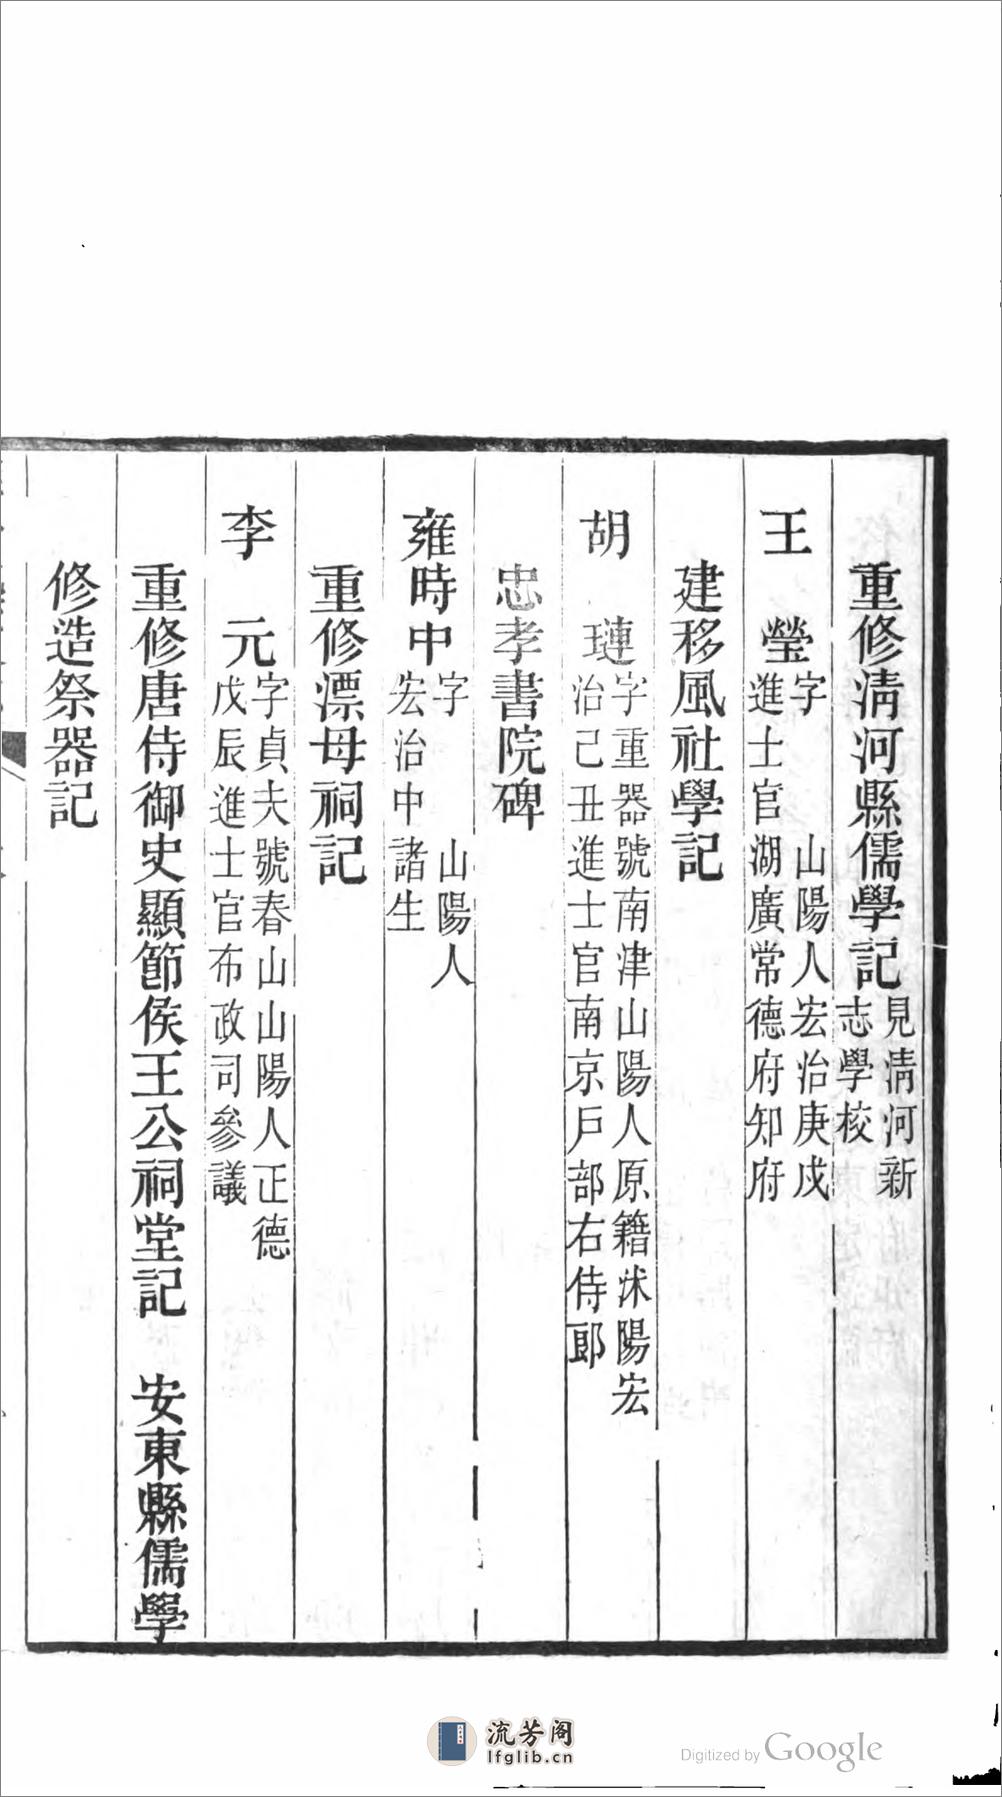 重修淸河縣儒學記見淸河新志學校
王　瑩字　　山陽人宏治庚戍進士官湖廣常德府知府
建移風社學記
胡　璉字重器號南津山陽人原籍沭陽宏治己丑進士官南京戸部右侍郎
忠孝書院碑
雍時中字　　山陽人宏治中諸生
重修漂母祠記
李　元字貞夫號春山山陽人正德戊辰進士官布政司參議
重修唐侍御史顯節侯王公祠堂記　安東縣儒學
修造祭器記
流芳阁
lfglib.cn
Digitized by Google